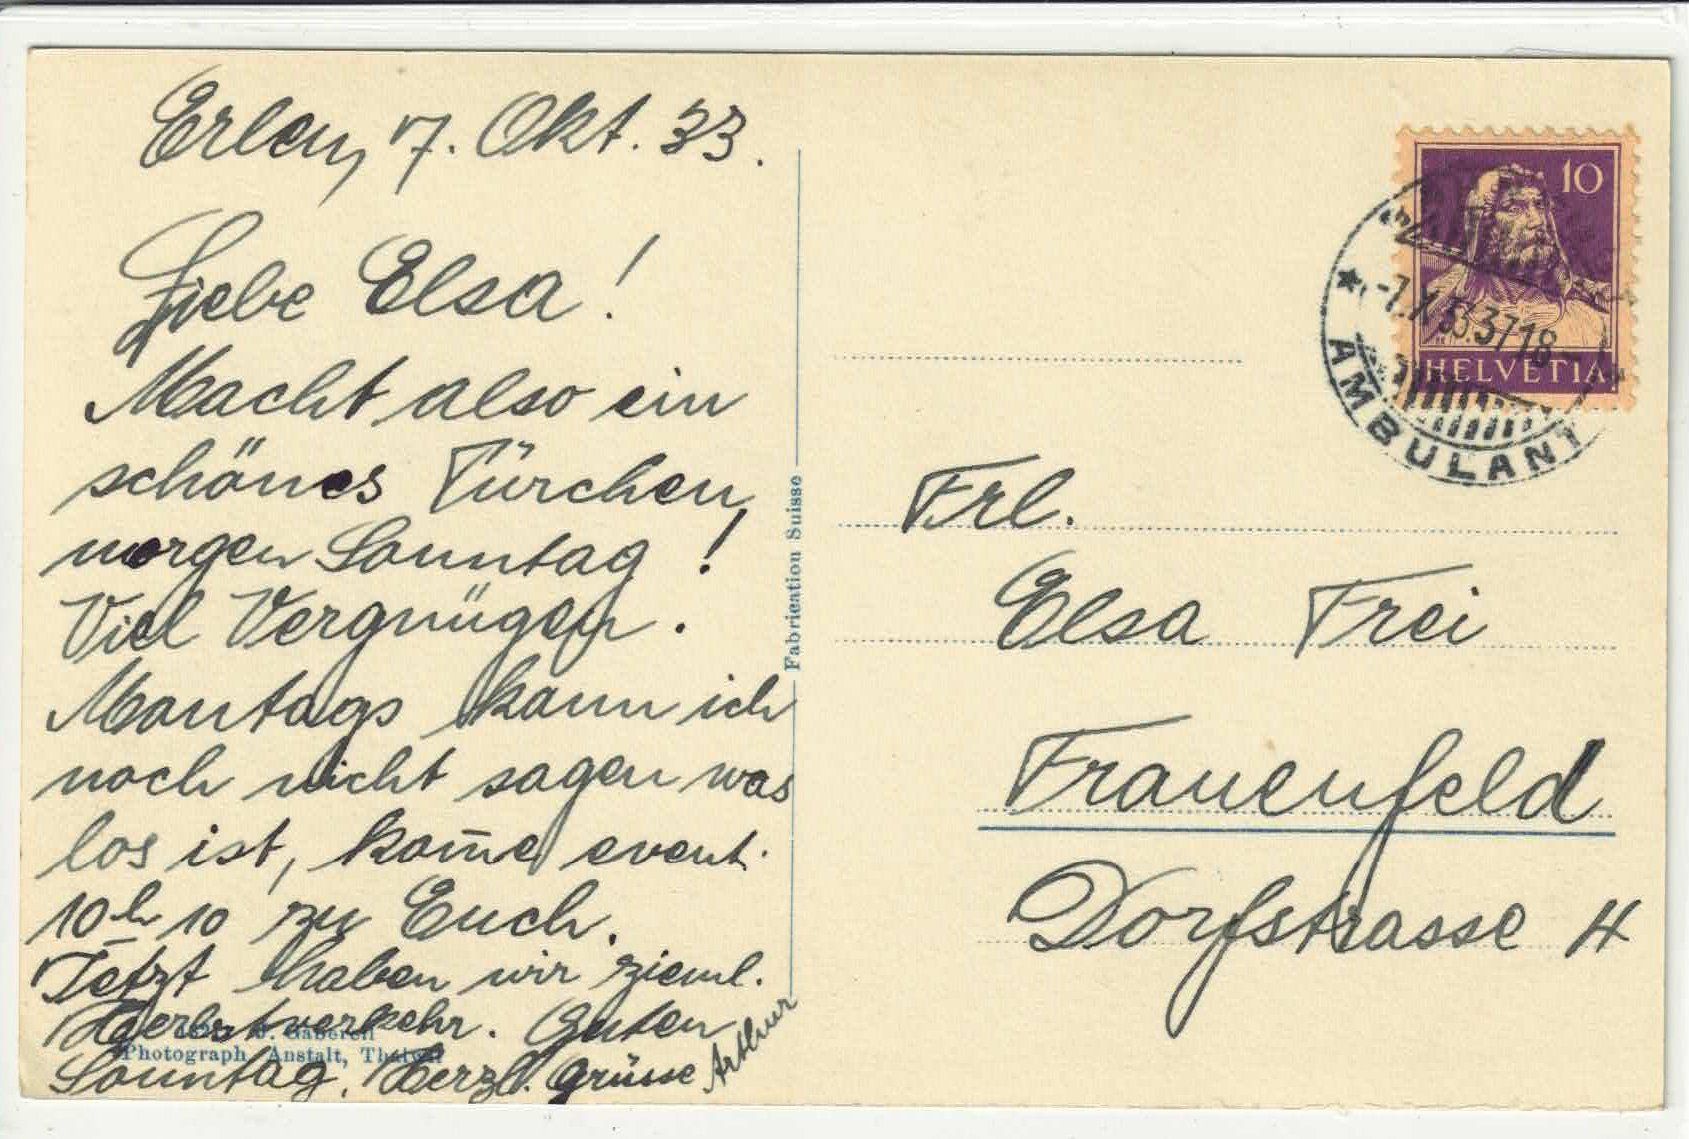 Erlen, 7. Okt. 33.
Liebe Elsa!
Macht also ein
schönes Türchen,
morgen Sonntag!
Viel Vergnügen.
Montags kann ich
noch nicht sagen was
los ist, kom̄e event.
10h 10 zu Euch.
Jetzt haben wir zieml.
Herbstverkehr. Guten
Sonntag. Herzl. Grüsse Arthur
J. Gaberell
Photograph. Anstalt, Thalwil
Fabrication Suisse
10
HELVETIA
AMBULANT
Frl.
Elsa Frei
Frauenfeld
Dorfstrasse